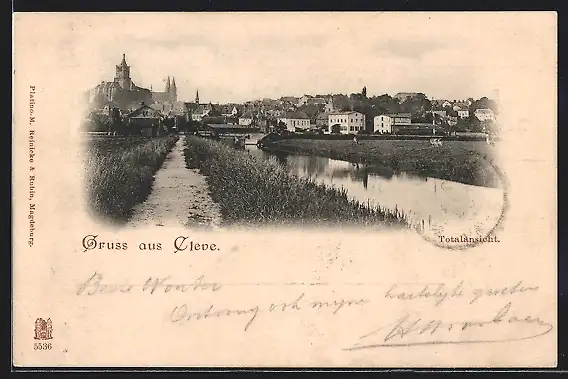 Platino-M. Reinicke & Rubin, Magdeburg.
Gruss aus Cleve.
Totalansicht.
Beste Wouter
Ontvang ook mijne hartelijke groeten
5536